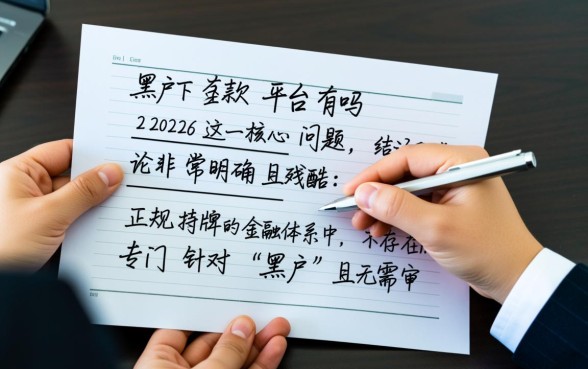 黑户下款 平台有吗
220226 这一核心 问题，结
论非常明确且残酷：
正规持牌的金融体系中，不存在
专门 针对 “黑户”且无需审